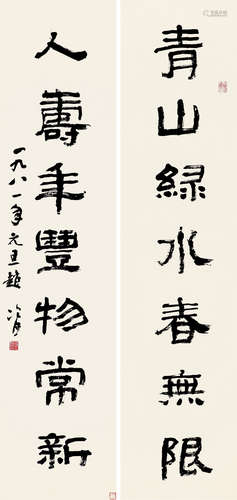 青山綠水春無限
人壽年豐物常新
一九八一年元旦